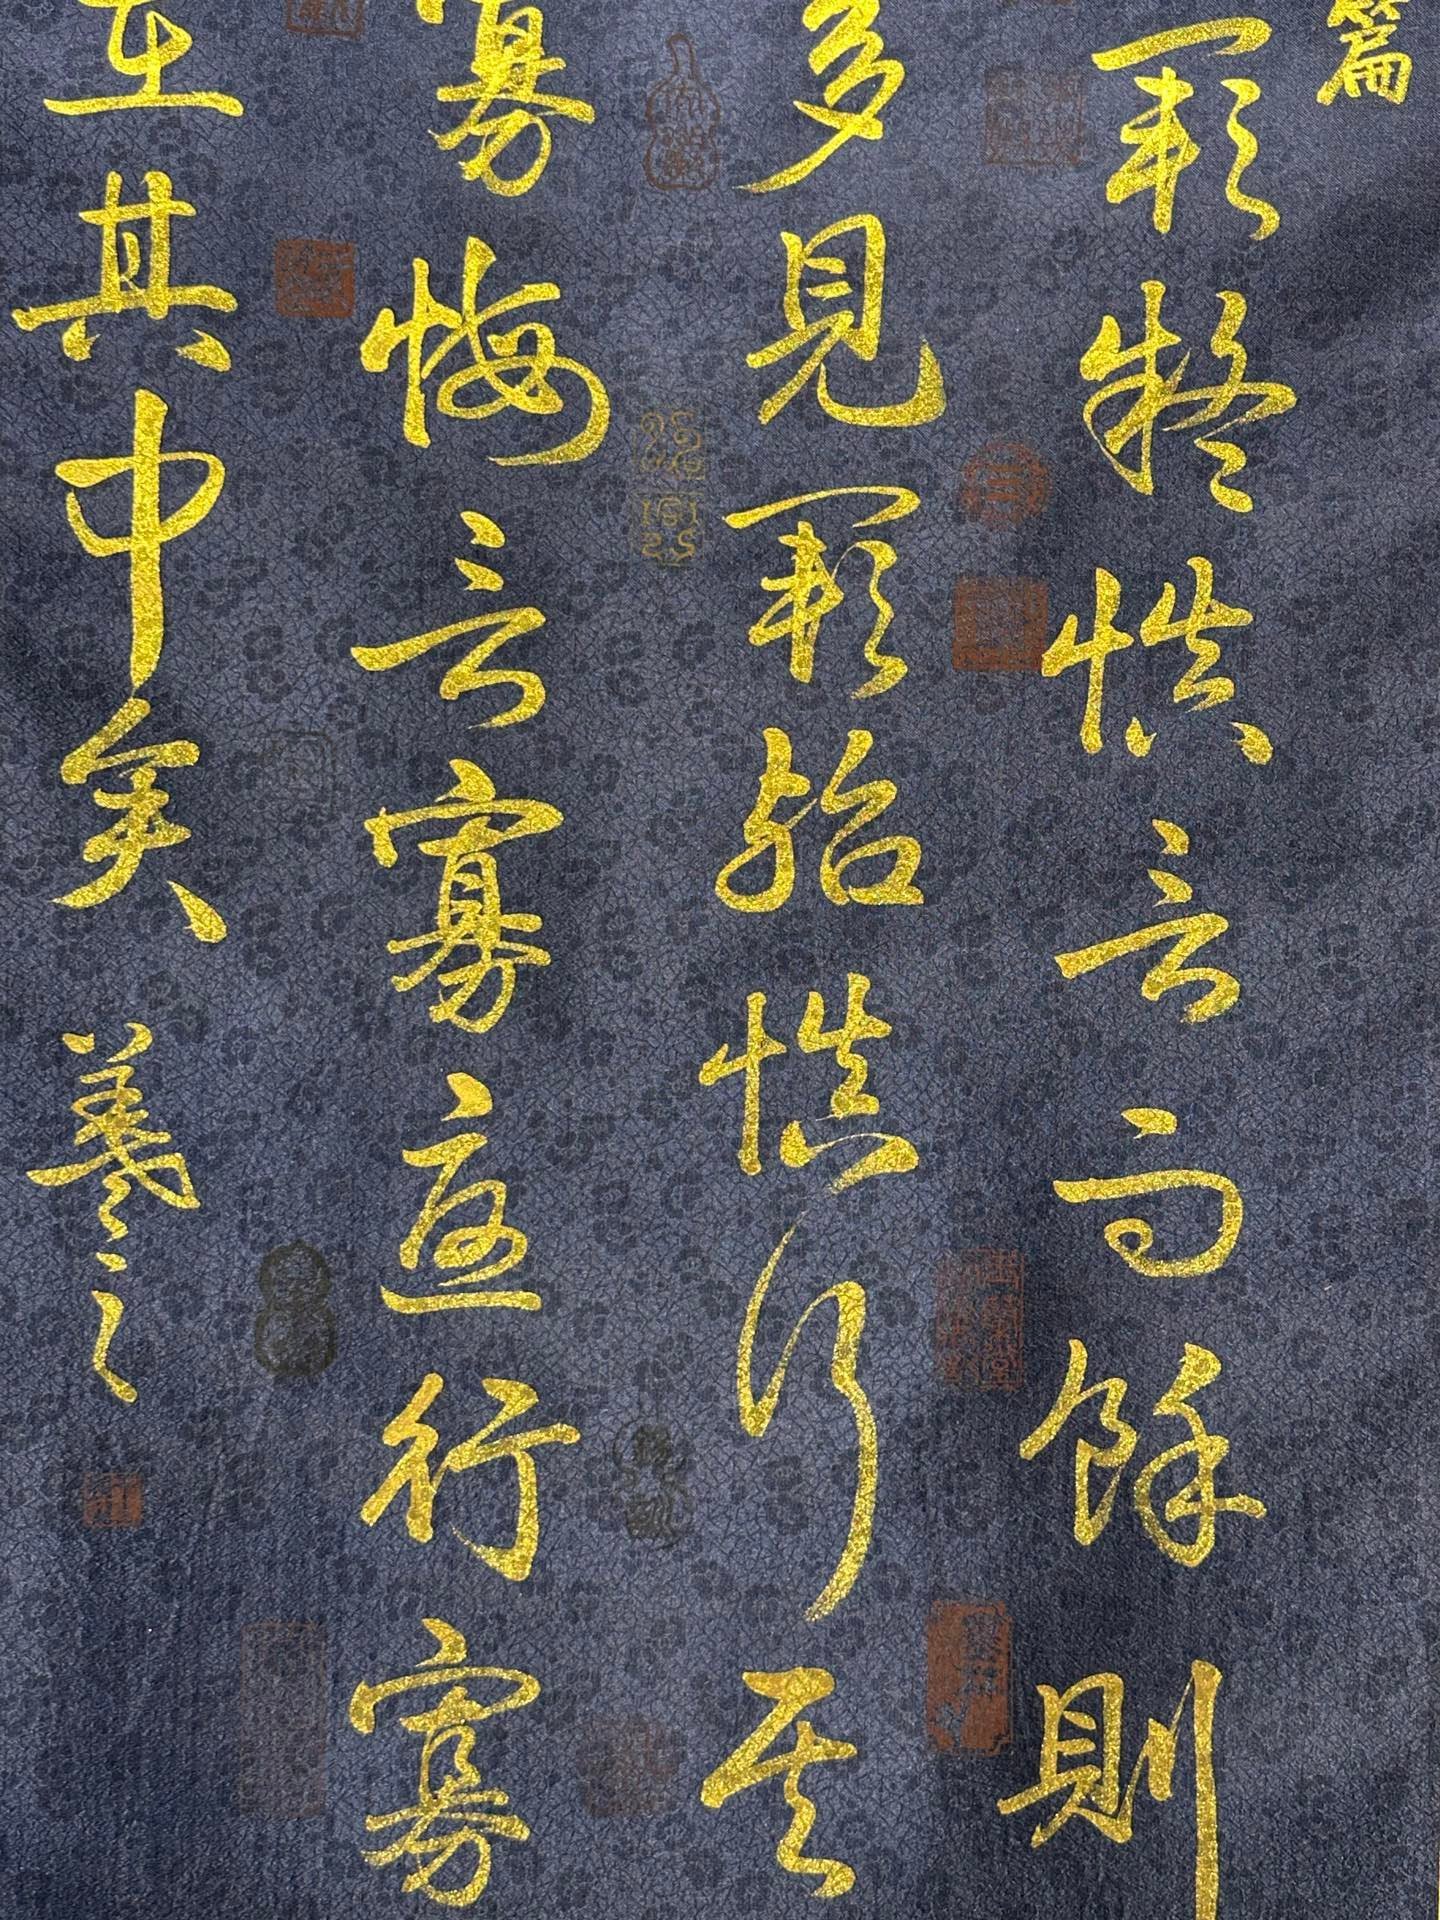 篇
闕疑慎言其餘則
多見闕殆慎行其
寡悔言寡尤行寡
在其中矣羲之